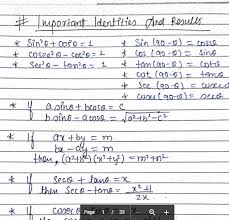 # Important Identities And Results
* Sin²θ + cos²θ = 1
* cosec²θ - cot²θ = 1
* Sec²θ - tan²θ = 1
* Sin (90-θ) = cosθ
* Cos (90-θ) = Sinθ
* tan (90-θ) = cotθ
* cot (90-θ) = tanθ
* Sec (90-θ) = cosecθ
* cosec (90-θ) = secθ
* If a sinθ + b cosθ = c
b sinθ - a cosθ = √a²+b²-c²
* If ax + by = m
bx - ay = n
then, (a²+b²)(x²+y²) = m²+n²
* If secθ + tanθ = x
then Secθ - tanθ =
2x
* If cosec
Page 1 / 33